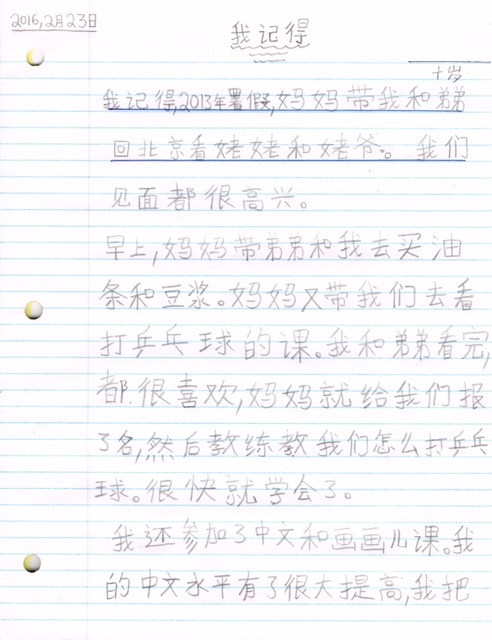 2016,2月23日
我记得
十岁
我记得,2013年暑假,妈妈带我和弟弟
回北京看姥姥和姥爷。我们
见面都很高兴。
早上,妈妈带弟弟和我去买油
条和豆浆。妈妈又带我们去看
打乒乓球的课。我和弟弟看完,
都很喜欢,妈妈就给我们报
了名,然后教练教我们怎么打乒乓
球。很快就学会了。
我还参加了中文和画画儿课。我
的中文水平有了很大提高,我把